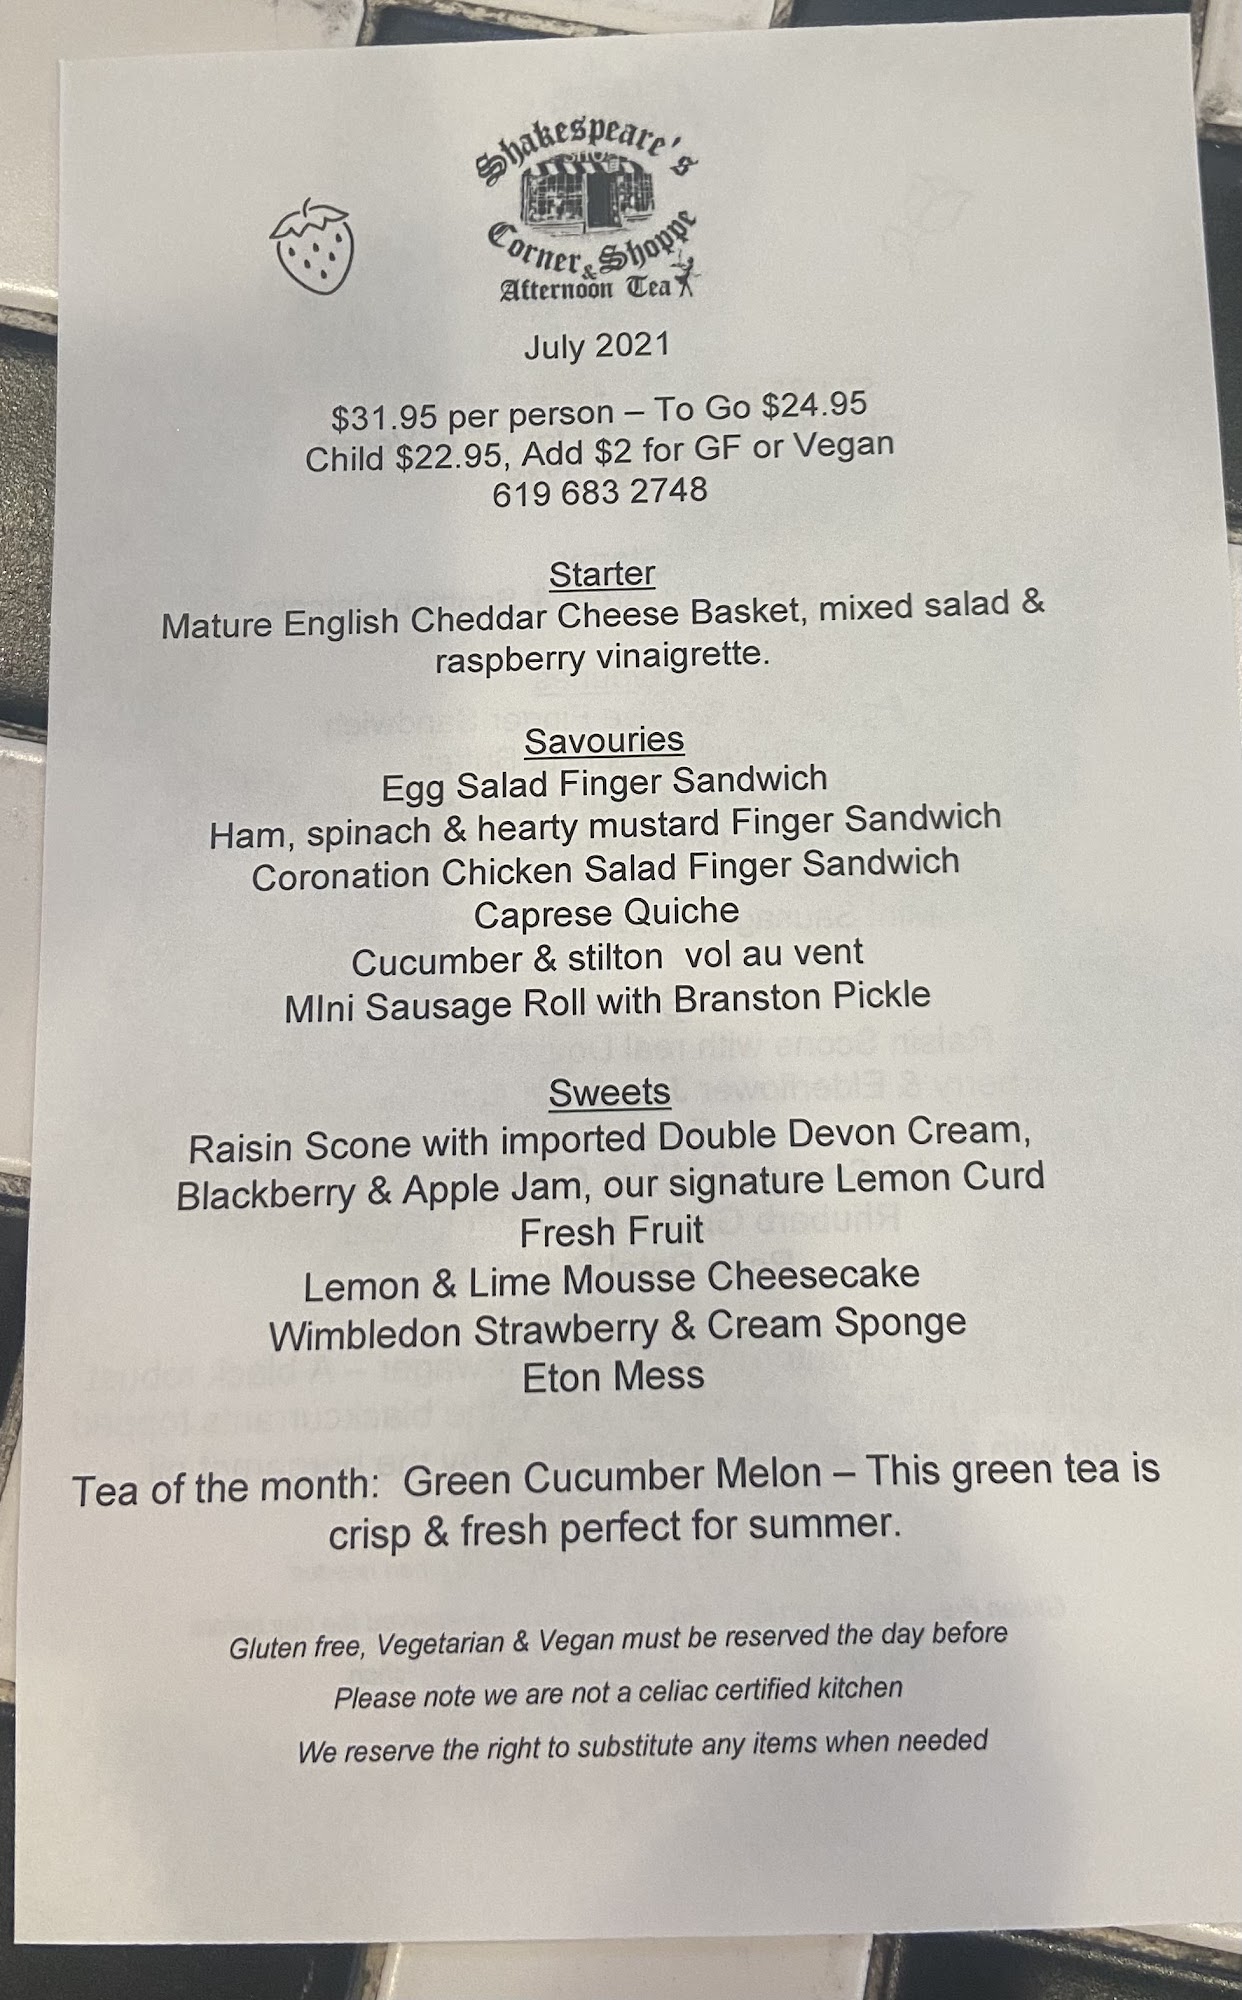 Shakespeare's
Corner & Shoppe
Afternoon Tea
July 2021
$31.95 per person – To Go $24.95
Child $22.95, Add $2 for GF or Vegan
619 683 2748
Starter
Mature English Cheddar Cheese Basket, mixed salad &
raspberry vinaigrette.
Savouries
Egg Salad Finger Sandwich
Ham, spinach & hearty mustard Finger Sandwich
Coronation Chicken Salad Finger Sandwich
Caprese Quiche
Cucumber & stilton vol au vent
MIni Sausage Roll with Branston Pickle
Sweets
Raisin Scone with imported Double Devon Cream,
Blackberry & Apple Jam, our signature Lemon Curd
Fresh Fruit
Lemon & Lime Mousse Cheesecake
Wimbledon Strawberry & Cream Sponge
Eton Mess
Tea of the month: Green Cucumber Melon – This green tea is
crisp & fresh perfect for summer.
Gluten free, Vegetarian & Vegan must be reserved the day before
Please note we are not a celiac certified kitchen
We reserve the right to substitute any items when needed